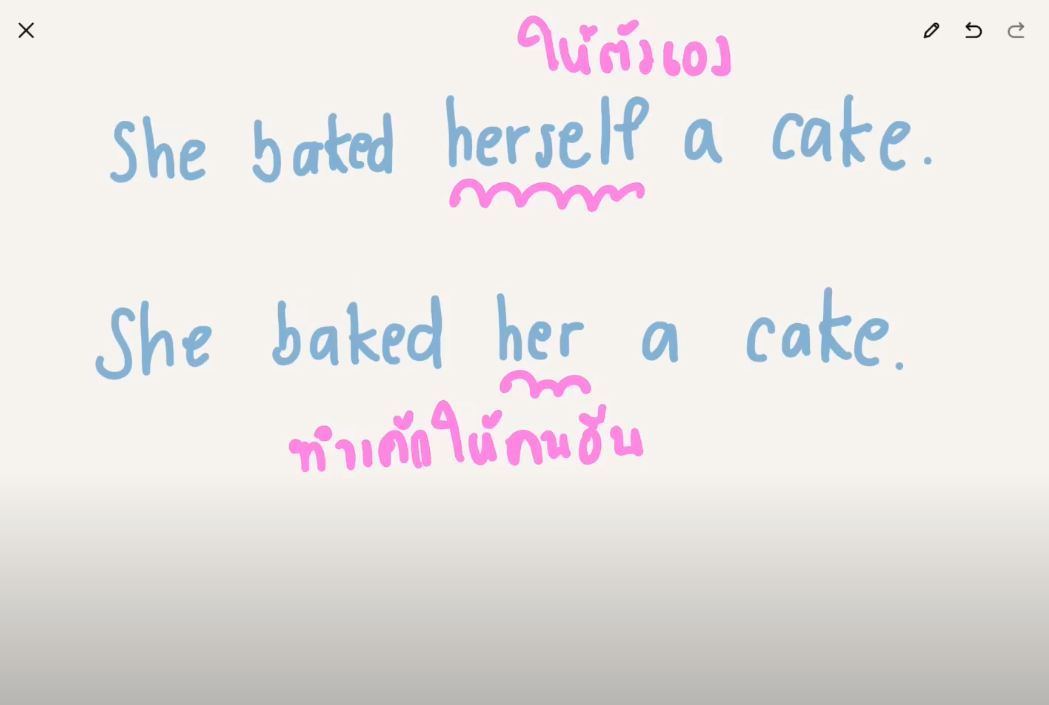 ให้ตัวเอง
She baked herself a cake.
She baked her a cake.
ทำเค้กให้คนอื่น